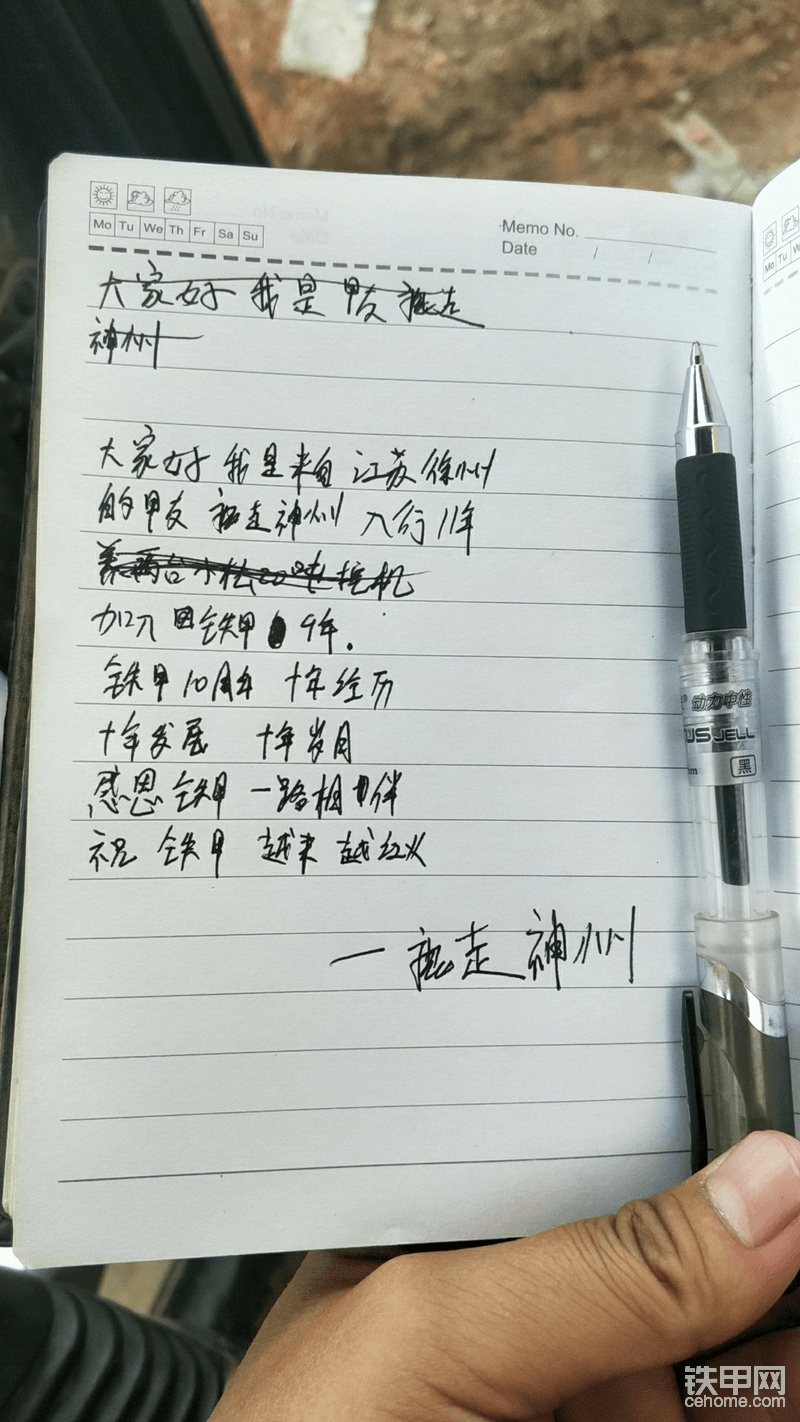 Mo Tu We Th Fr Sa Su
Memo No.
Date / /
大家好 我是 甲友 挖走
神州
大家好 我是来自 江苏徐州
的甲友 挖走神州 入行11年
两台小松20吨挖机
加入 铁甲 9年.
铁甲10周年 十年经历
十年发展 十年岁月
感恩铁甲 一路相伴
祝 铁甲 越来越红火
一挖走神州
动力中性
JELL
黑
Mo Tu
铁甲网
cehome.com